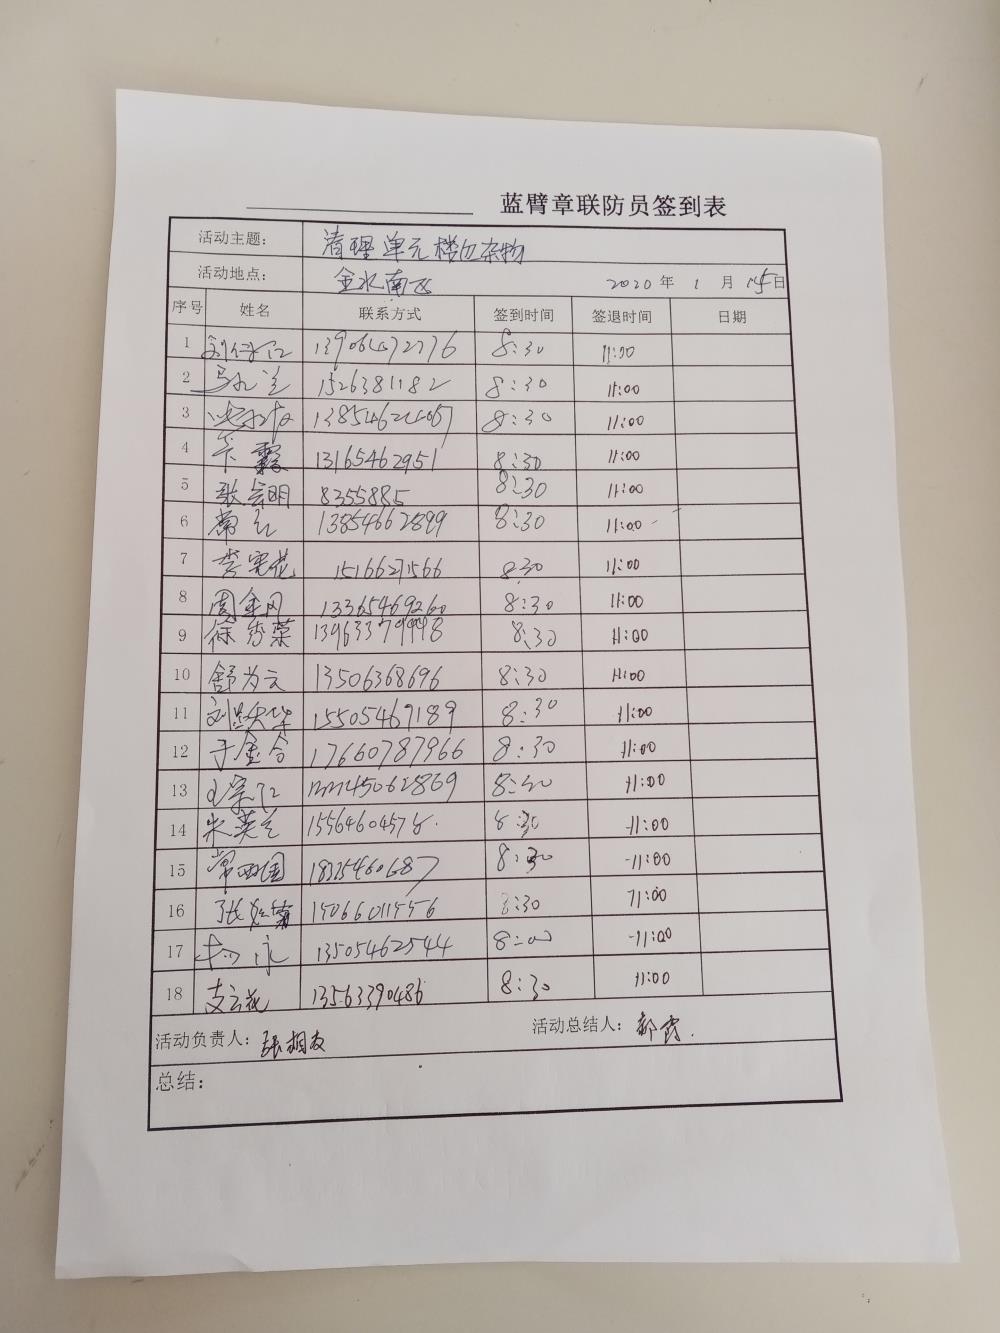 蓝臂章联防员签到表
活动主题： 清理单元楼口杂物
活动地点： 金水南区 2020 年 1 月 15日
序号 姓名 联系方式 签到时间 签退时间 日期
1 8:30 11:00
2 马永兰 1526381182 8:30 11:00
3 8:30 11:00
4 13165462951 8:30 11:00
5 8355885 8:30 11:00
6 常红 13854662899 8:30 11:00
7 李宪花 15166271566 8:30 11:00
8 周金凤 13365469260 8:30 11:00
9 徐秀荣 8:30 11:00
10 舒为云 13506368696 8:30 11:00
11 15505469189 8:30 11:00
12 于金合 17660787966 8:30 11:00
13 8:30 11:00
14 朱英兰 8:30 11:00
15 常西国 18325460687 8:30 11:00
16 15066011556 8:30 11:00
17 13505462544 8:00 11:00
18 支云花 13563390486 8:30 11:00
活动负责人： 张相友 活动总结人： 郝霞.
总结：